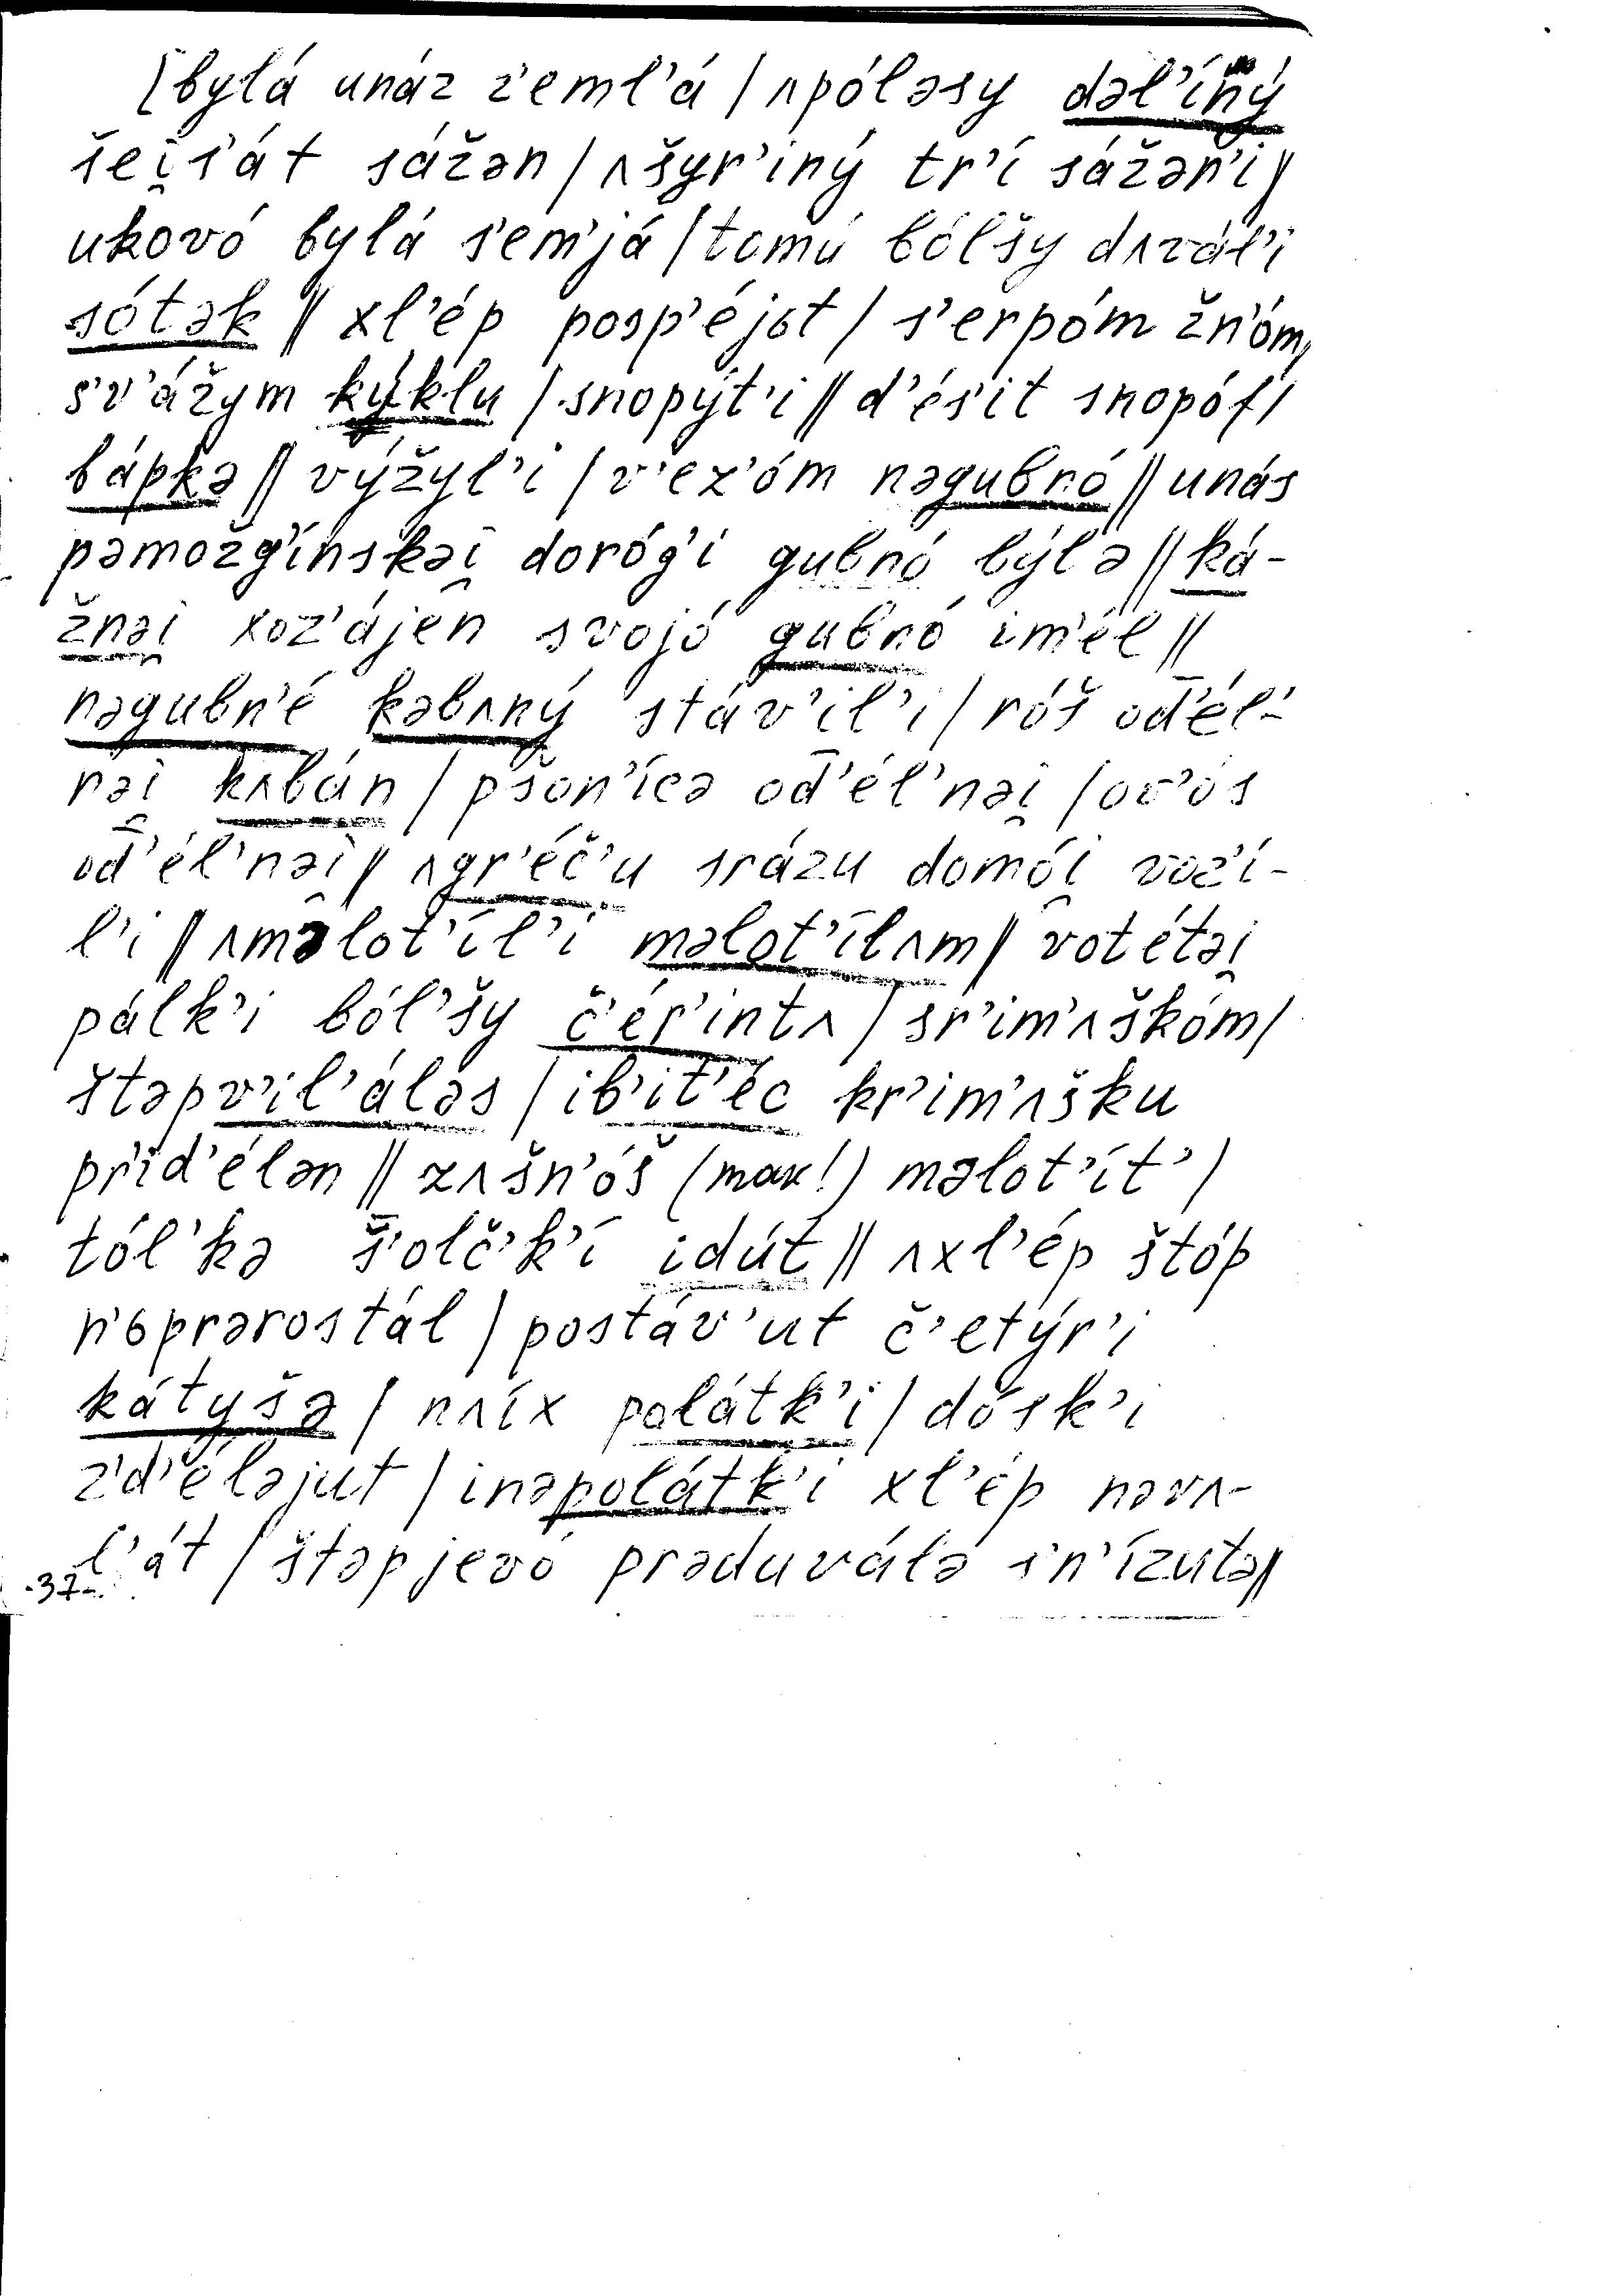 [bylá unáz z'eml'á / ʌpóləsy dəl'íný
šei̯s'át sážən / ʌšyr'iný tr'í sážən'i //
ukovó bylá s'em'já / tomú bólšy dʌvál'i
sótək // xl'ép posp'éjɵt / s'erpóm žn'óm,
s'v'ážym kýklu / snopýt'i // d'és'it snopóf /
bápkə // výžyl'i / v'ez'óm nəgubnó // unás
pəmožg'ínskəi̯ doróg'i gubnó býlə // ká-
žnəi̯ xoz'ájen svojó gubnó im'él //
nəgubn'é kəbʌný stáv'il'i / róš od̄'él'-
nəi̯ kʌbán / pšon'ícə od̄'él'nəi̯ / ov'ós
od̄'él'nəi̯ // ʌgr'éč'u srázu domói̯ voz'í-
l'i // ʌməlot'íl'i məlot'ílʌm // vot étəi̯
pálk'i ból'šy č'ér'intʌ / sr'im'ʌškóm /
štəpv'il'áləs / ib'it'éc kr'im'ʌšku
pr'id'élən // zʌšn'óš (так!) məlot'ít' /
tól'kə š̄'olč'k'í idút // ʌxl'ép štóp
n'ɵprərostál / postáv'ut č'etýr'i
kátyšə / nʌíx polátk'i / dósk'i
z'd'éləjut / inəpolátk'i xl'ép nəvʌ-
l'át / štəp jevó prəduválə s'n'ízutə //
-37-